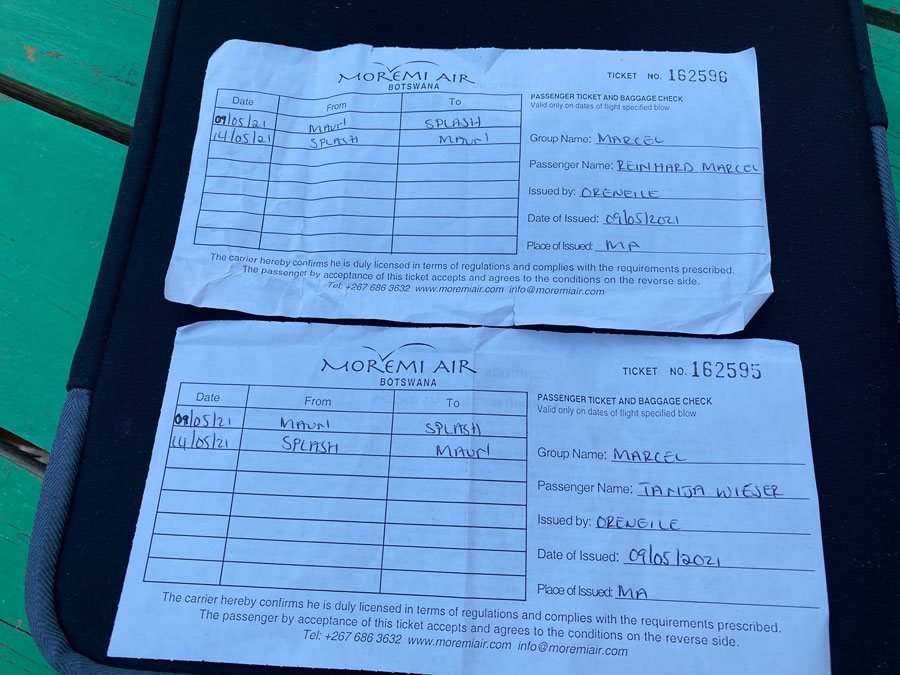 MOREMI AIR
BOTSWANA
TICKET NO. 162596
Date From To
09/05/21 MAUN SPLASH
14/05/21 SPLASH MAUN
PASSENGER TICKET AND BAGGAGE CHECK
Valid only on dates of flight specified blow
Group Name: MARCEL
Passenger Name: REINHARD MARCEL
Issued by: ORENEILE
Date of Issued: 09/05/2021
Place of Issued: MA
The carrier hereby confirms he is duly licensed in terms of regulations and complies with the requirements prescribed.
The passenger by acceptance of this ticket accepts and agrees to the conditions on the reverse side.
Tel: +267 686 3632 www.moremiair.com info@moremiair.com
MOREMI AIR
BOTSWANA
TICKET NO. 162595
Date From To
09/05/21 MAUN SPLASH
14/05/21 SPLASH MAUN
PASSENGER TICKET AND BAGGAGE CHECK
Valid only on dates of flight specified blow
Group Name: MARCEL
Passenger Name: TANJA WIESER
Issued by: ORENEILE
Date of Issued: 09/05/2021
Place of Issued: MA
The carrier hereby confirms he is duly licensed in terms of regulations and complies with the requirements prescribed.
The passenger by acceptance of this ticket accepts and agrees to the conditions on the reverse side.
Tel: +267 686 3632 www.moremiair.com info@moremiair.com